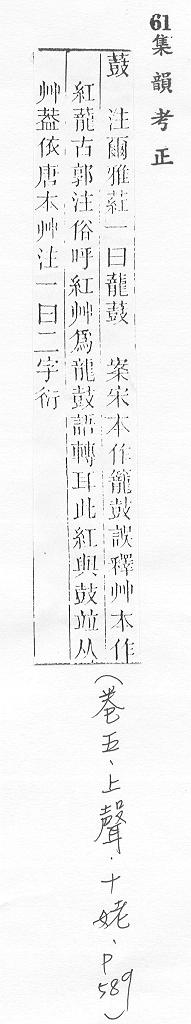 61集韻考正
鼓 注爾雅葒一曰龍鼓 案宋本作籠鼓誤釋艸本作
紅龍古郭注俗呼紅艸爲龍鼓語轉耳此紅與鼓竝从
艸葢依唐本艸注一曰二字衍
(卷五、上聲.十姥、P589)